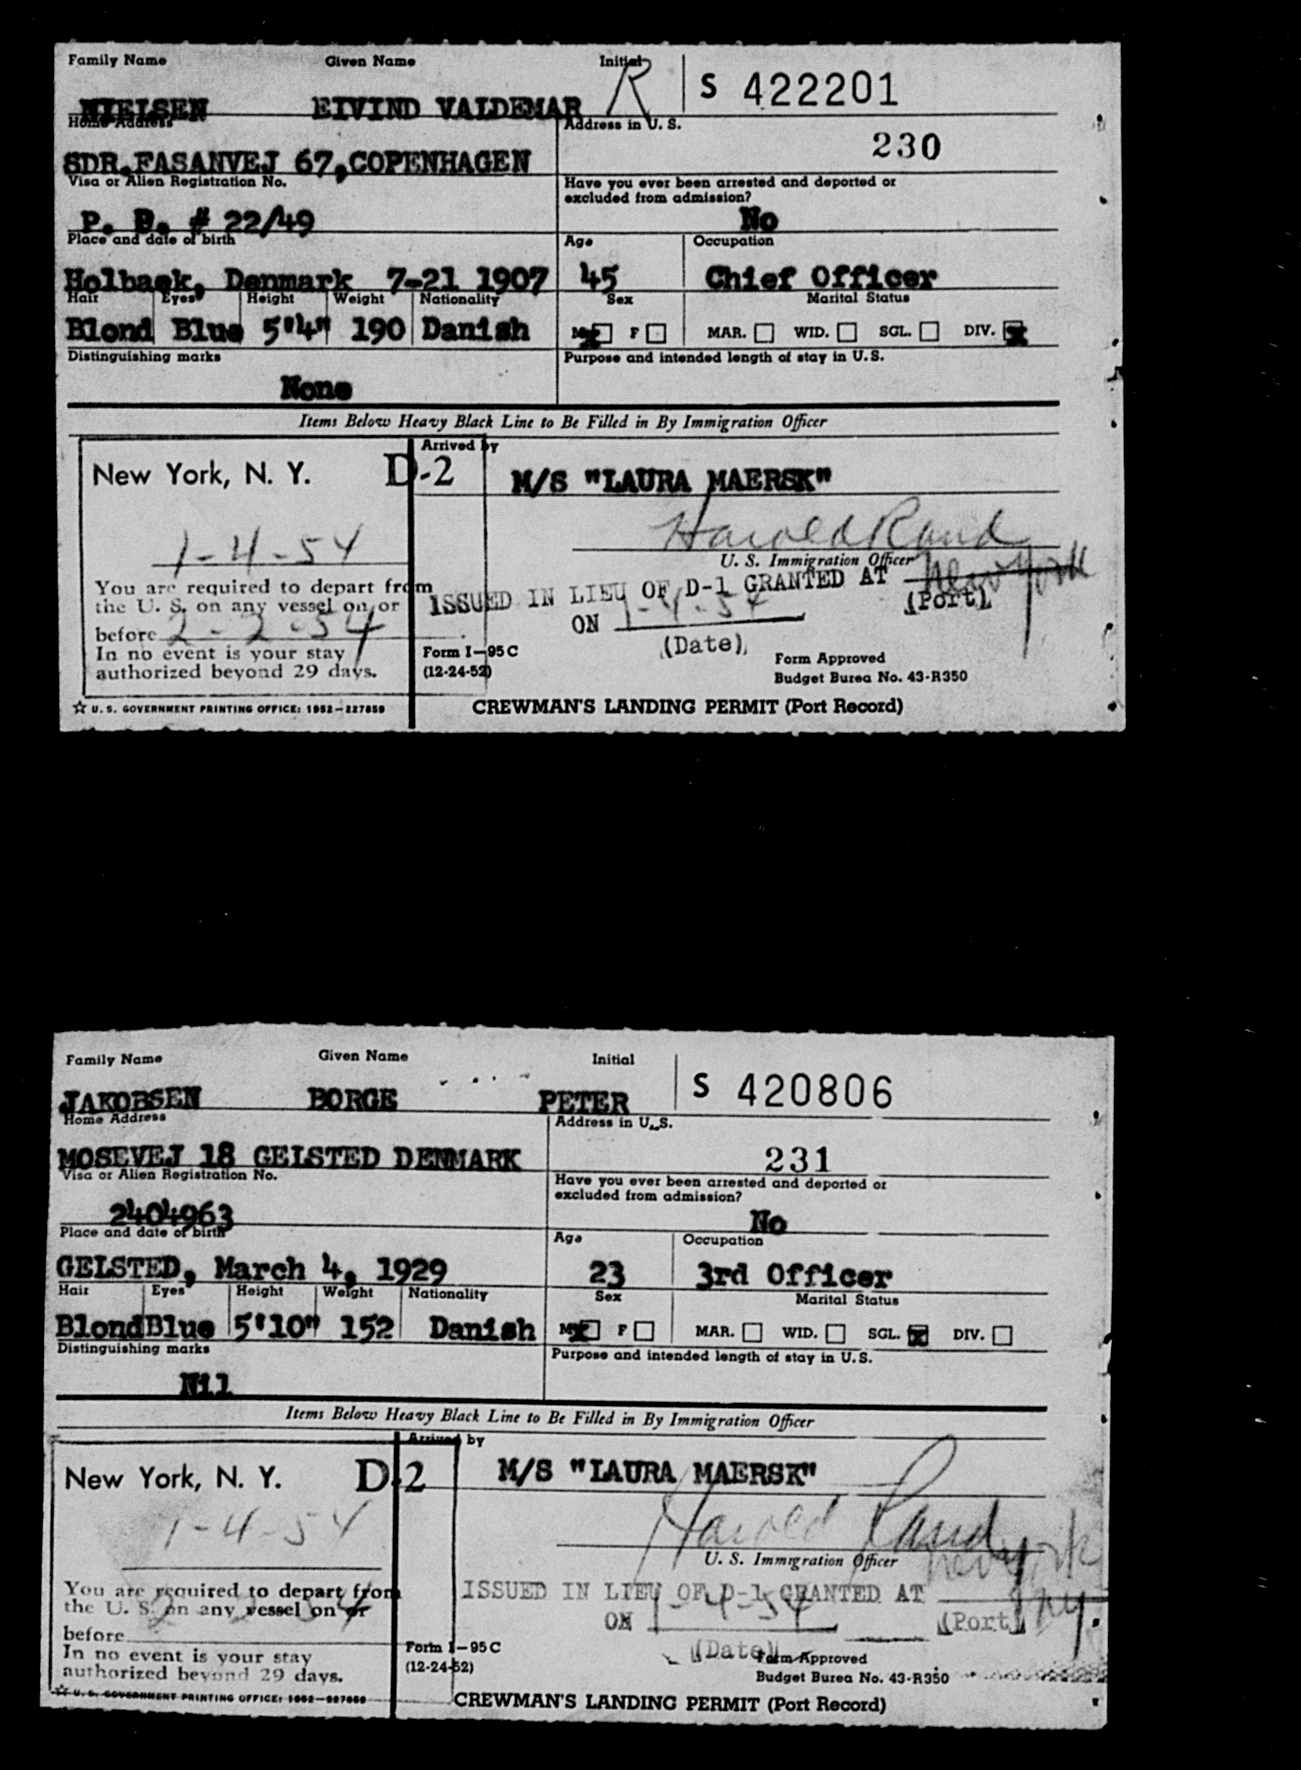 Family Name Given Name Initial
NIELSEN EIVIND VALDEMAR R S 422201
Home Address Address in U. S.
SDR.FASANVEJ 67,COPENHAGEN 230
Visa or Alien Registration No. Have you ever been arrested and deported or
excluded from admission?
P. B. # 22/49 No
Place and date of birth Age Occupation
Holbaek, Denmark 7-21 1907 45 Chief Officer
Hair Eyes Height Weight Nationality Sex Marital Status
Blond Blue 5'4" 190 Danish M F MAR. WID. SGL. DIV.
Distinguishing marks Purpose and intended length of stay in U.S.
None
Items Below Heavy Black Line to Be Filled in By Immigration Officer
Arrived by
New York, N. Y. D-2 M/S "LAURA MAERSK"
1-4-54 Harold Rand
U. S. Immigration Officer
You are required to depart from
the U. S. on any vessel on or
before 2-2-54
In no event is your stay
authorized beyond 29 days.
ISSUED IN LIEU OF D-1 GRANTED AT New York
(Port)
ON 1-4-54
(Date)
Form I-95C
(12-24-52)
Form Approved
Budget Burea No. 43-R350
U. S. GOVERNMENT PRINTING OFFICE: 1952-227859 CREWMAN'S LANDING PERMIT (Port Record)
Family Name Given Name Initial
JAKOBSEN BORGE PETER S 420806
Home Address Address in U. S.
MOSEVEJ 18 GELSTED DENMARK 231
Visa or Alien Registration No. Have you ever been arrested and deported or
excluded from admission?
2404963 No
Place and date of birth Age Occupation
GELSTED, March 4, 1929 23 3rd Officer
Hair Eyes Height Weight Nationality Sex Marital Status
Blond Blue 5'10" 152 Danish M F MAR. WID. SGL. DIV.
Distinguishing marks Purpose and intended length of stay in U.S.
Nil
Items Below Heavy Black Line to Be Filled in By Immigration Officer
Arrived by
New York, N. Y. D-2 M/S "LAURA MAERSK"
1-4-54 Harold Rand
U. S. Immigration Officer
You are required to depart from
the U. S. on any vessel on or
before
In no event is your stay
authorized beyond 29 days.
ISSUED IN LIEU OF D-1 GRANTED AT New York
NY
(Port)
ON 1-4-54
(Date)
Form I-95C
(12-24-52)
Form Approved
Budget Burea No. 43-R350
U. S. GOVERNMENT PRINTING OFFICE: 1952-227859 CREWMAN'S LANDING PERMIT (Port Record)